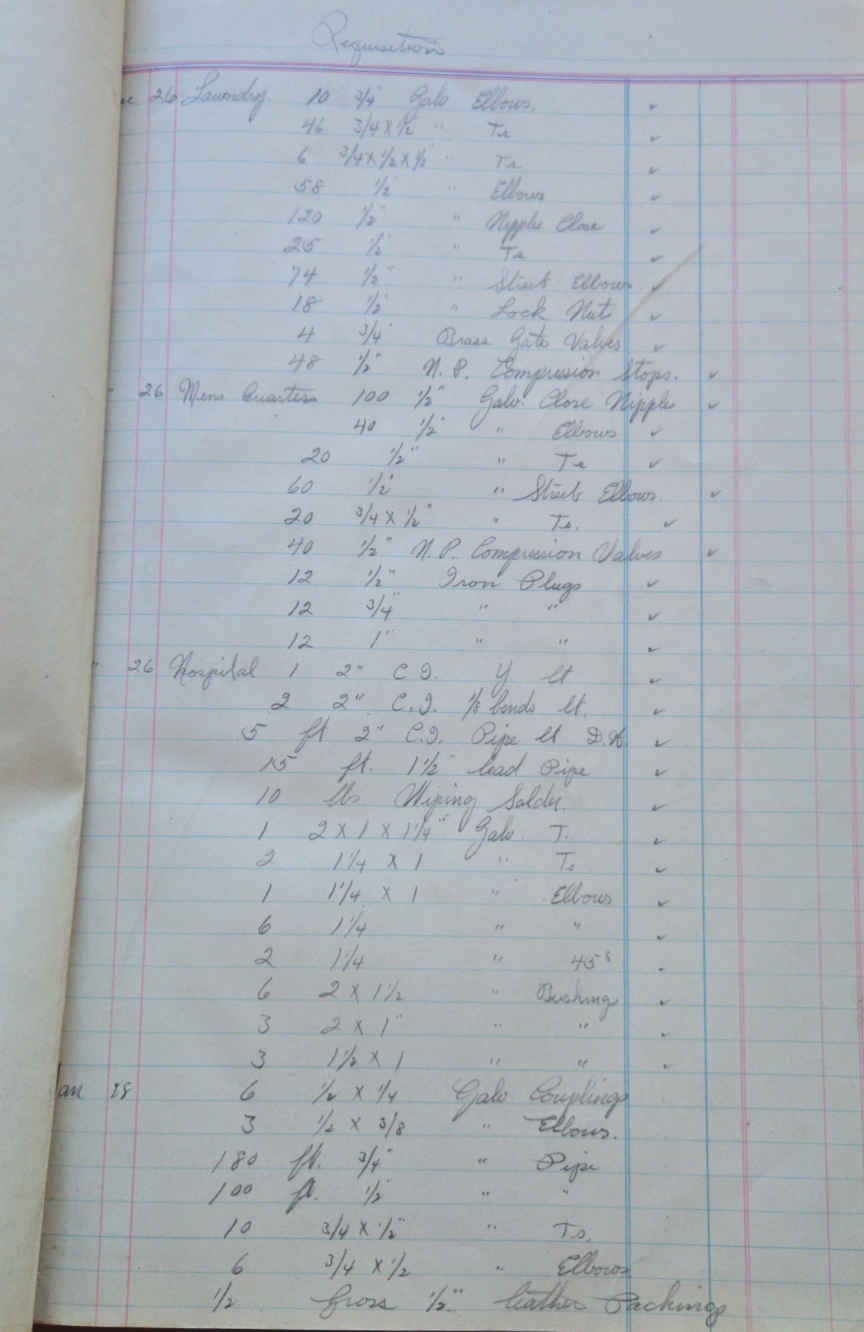 Requisition
26 Laundry 10 3/4" Galv Elbows. ✓
46 3/4 x 1/2 " Ts ✓
6 3/4 x 1/2 x 1/2 " Ts ✓
58 1/2" " Elbows ✓
120 1/2" " Nipples Close ✓
25 1/2" " Ts ✓
74 1/2" " Street Elbows ✓
18 1/2" " Lock Nuts ✓
4 3/4" Brass Gate Valves ✓
48 1/2" N.P. Compression Stops. ✓
" 26 Mens Quarters 100 1/2" Galv. Close Nipples ✓
40 1/2" " Elbows ✓
20 1/2" " Ts ✓
60 1/2" " Street Elbows. ✓
20 3/4 x 1/2" " Ts. ✓
40 1/2" N.P. Compression Valves ✓
12 1/2" Iron Plugs ✓
12 3/4" " " ✓
12 1" " " ✓
" 26 Hospital 1 2" C.I. Y lt ✓
2 2" C.I. 1/8 bends lt. ✓
5 ft 2" C.I. Pipe lt D.H. ✓
15 ft. 1 1/2" lead Pipe ✓
10 lbs Wiping Solder. ✓
1 2 x 1 x 1 1/4" Galv T. ✓
2 1 1/4 x 1 " Ts ✓
1 1 1/4 x 1 " Elbows ✓
6 1 1/4 " " ✓
2 1 1/4 " 45s
6 2 x 1 1/2 " Bushing ✓
3 2 x 1" " " ✓
3 1 1/2 x 1 " " ✓
Jan 28 6 1/2 x 1/4 Galv Couplings
3 1/2 x 3/8 " Elbows.
180 ft. 3/4" " Pipe
100 ft. 1/2" " "
10 3/4 x 1/2" " Ts.
6 3/4 x 1/2 " Elbows
1/2 Gross 1/2" leather Packings